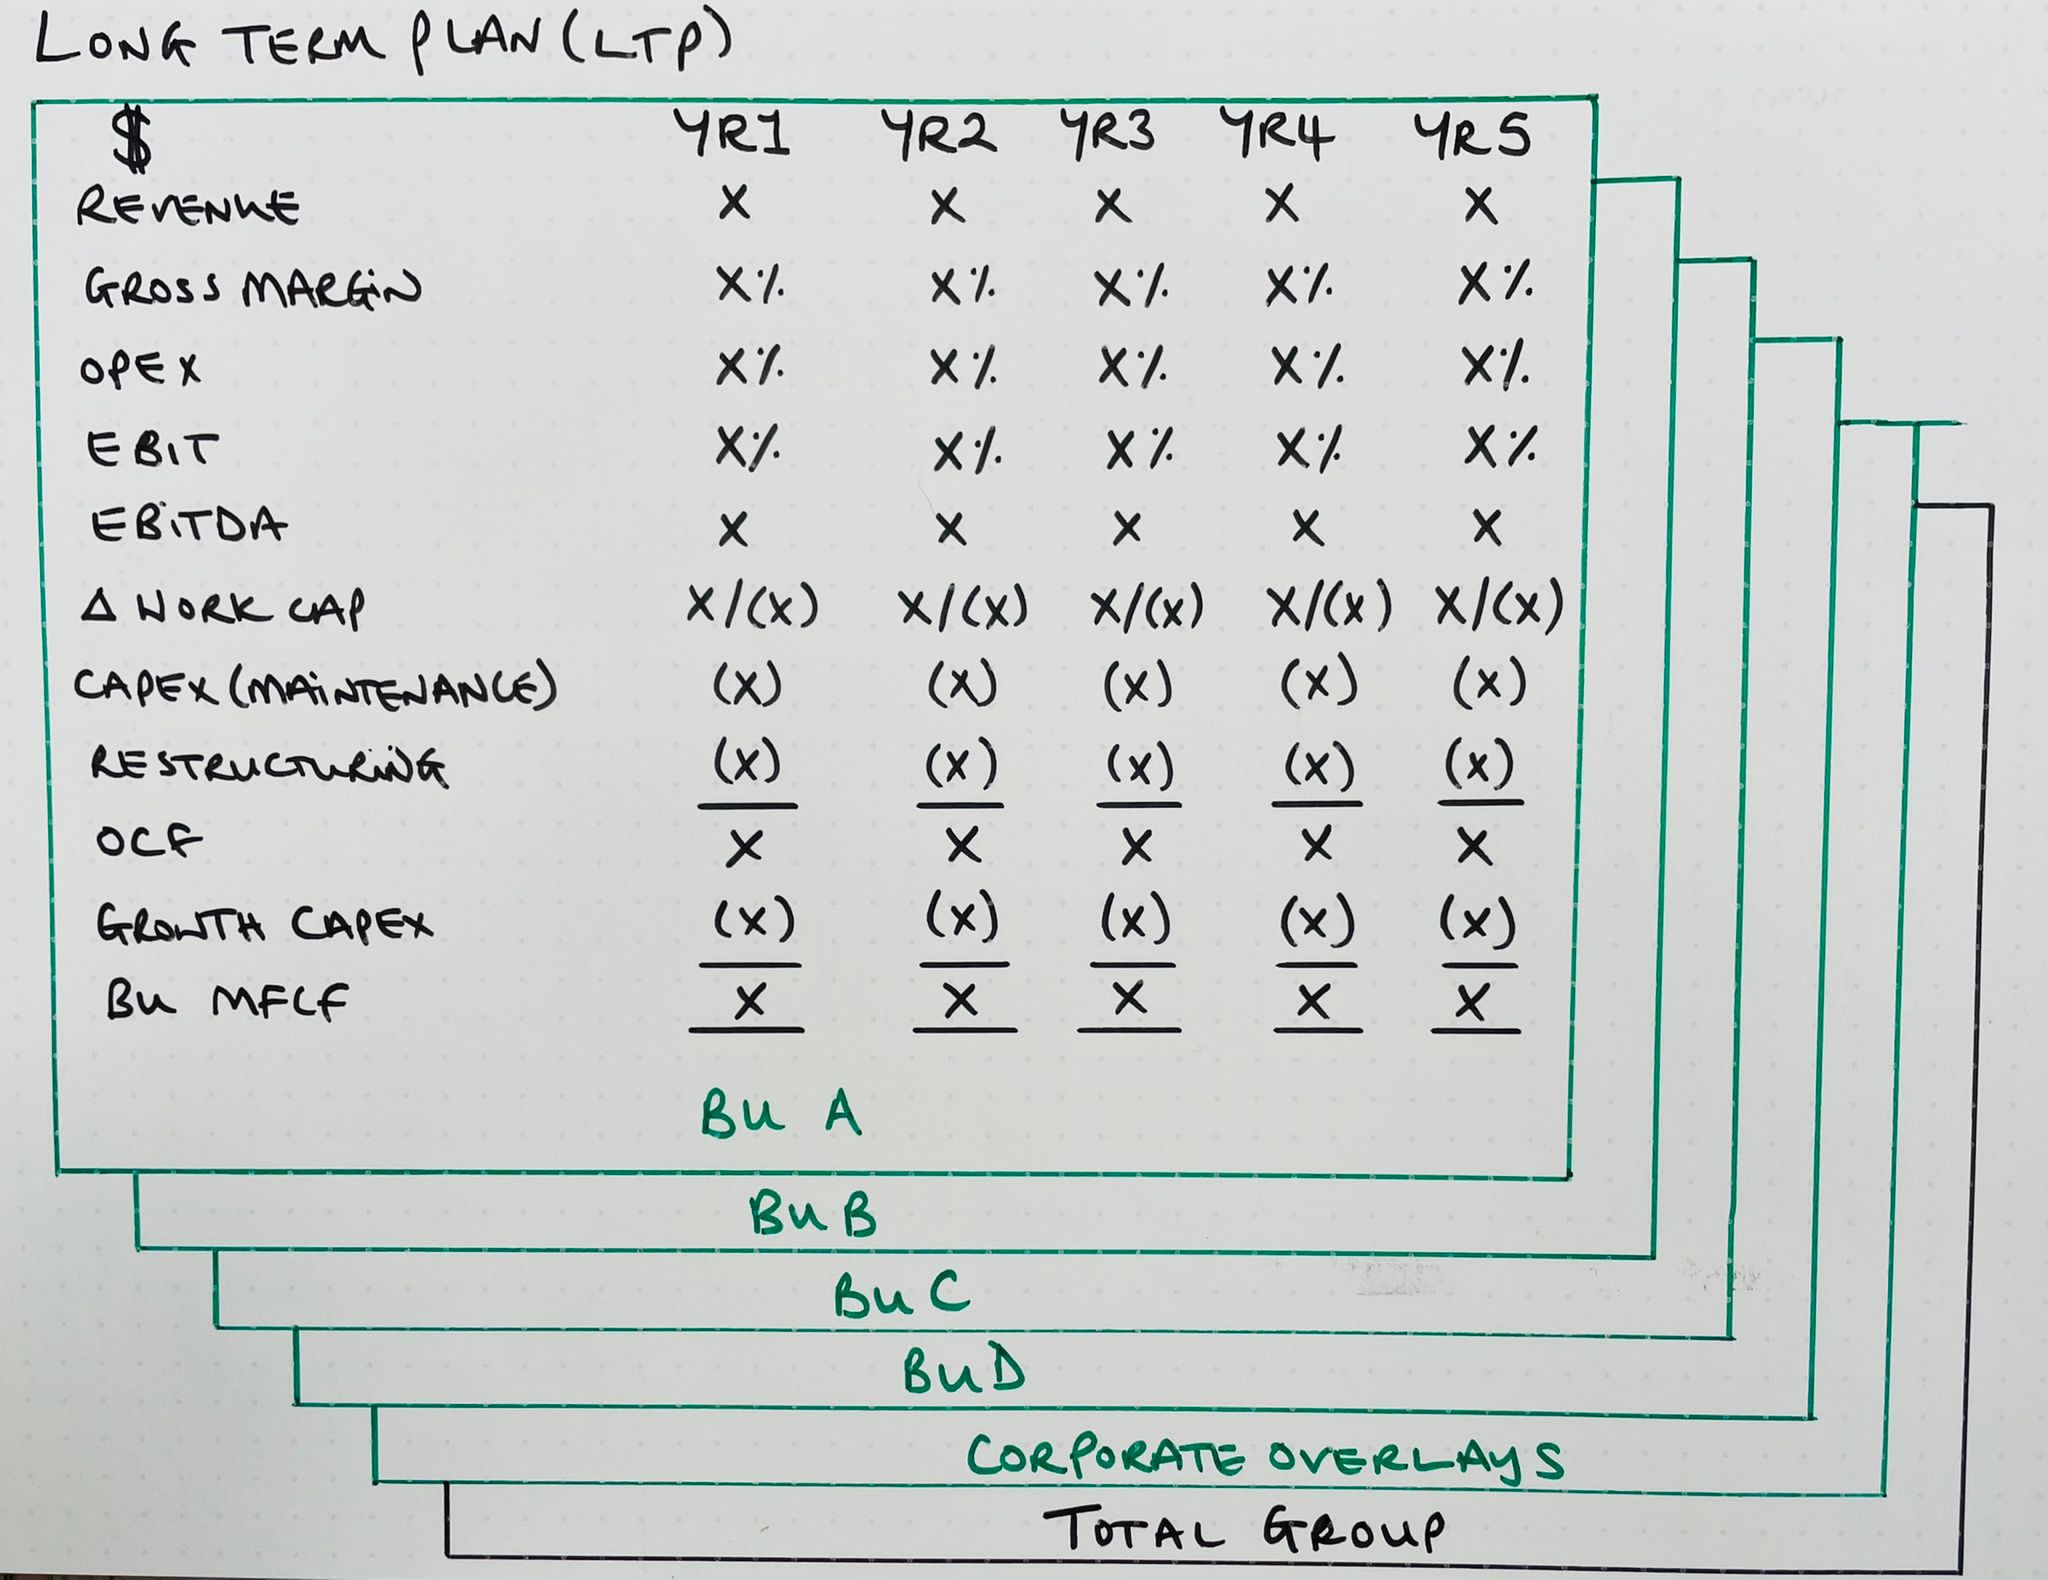 LONG TERM PLAN (LTP)
$ YR1 YR2 YR3 YR4 YR5
REVENUE X X X X X
GROSS MARGIN X% X% X% X% X%
OPEX X% X% X% X% X%
EBIT X% X% X% X% X%
EBITDA X X X X X
Δ WORK CAP X/(X) X/(X) X/(X) X/(X) X/(X)
CAPEX (MAINTENANCE) (X) (X) (X) (X) (X)
RESTRUCTURING (X) (X) (X) (X) (X)
OCF X X X X X
GROWTH CAPEX (X) (X) (X) (X) (X)
BU MFCF X X X X X
BU A
BU B
BU C
BU D
CORPORATE OVERLAYS
TOTAL GROUP